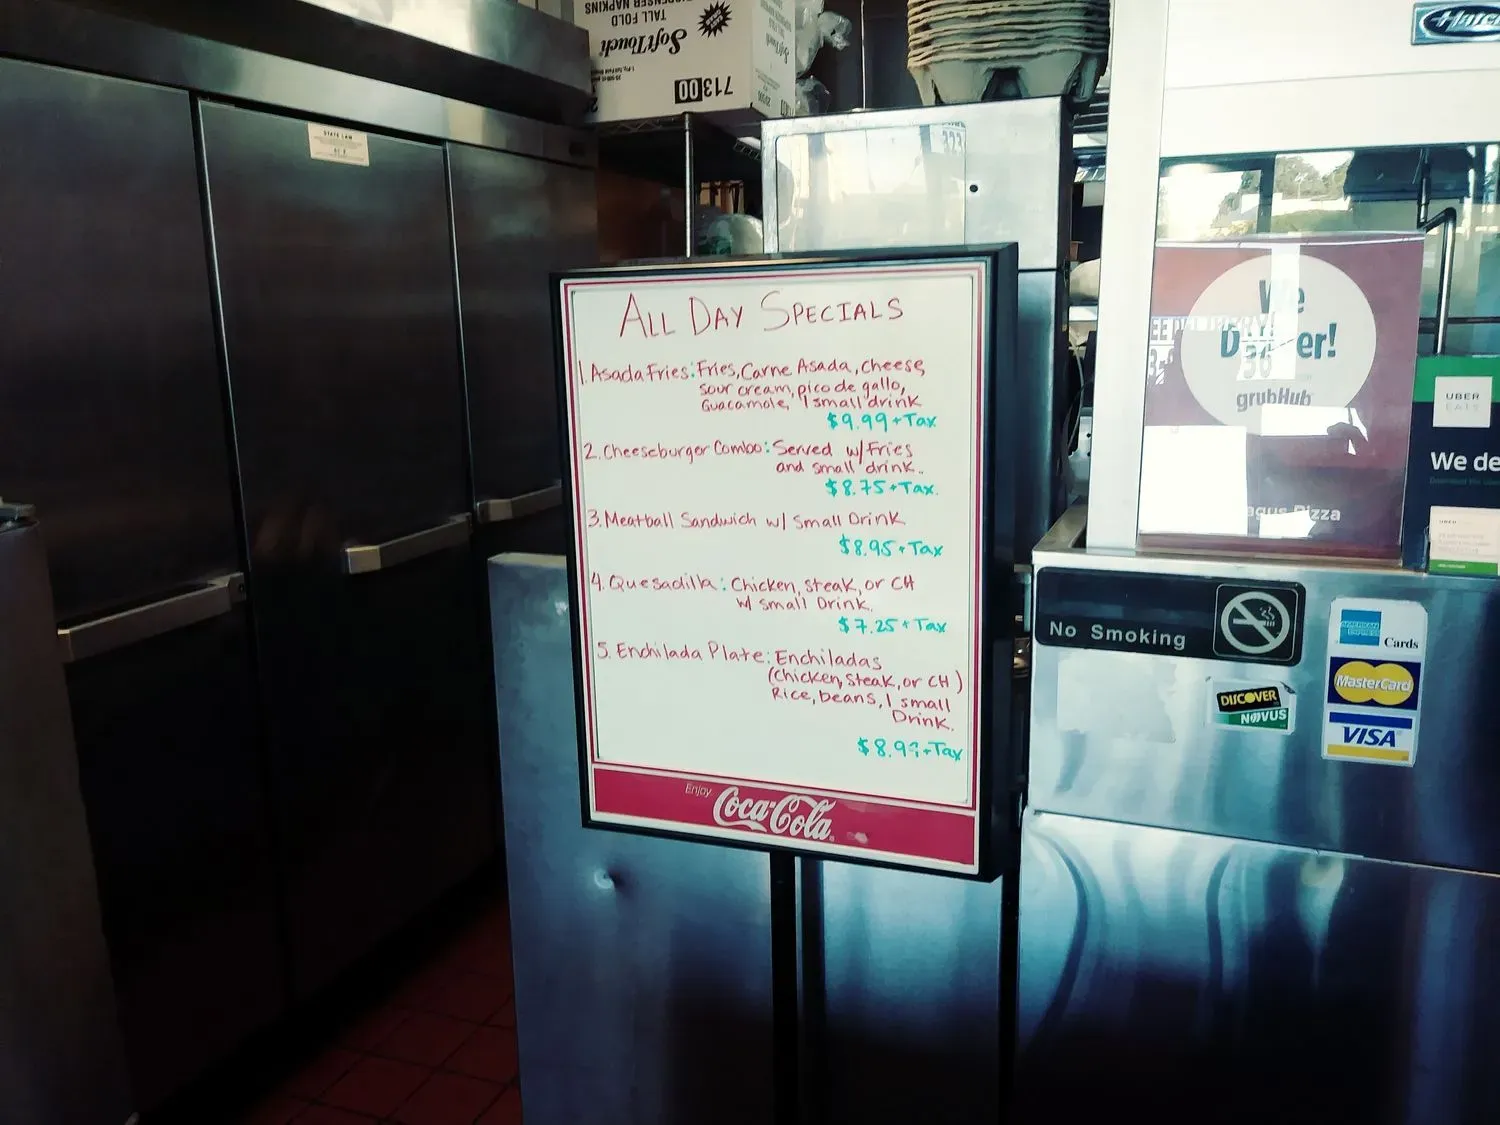 DISPENSER NAPKINS
TALL FOLD
SoftTouch
71300
STATE LAW
ALL DAY SPECIALS
1. Asada Fries: Fries, Carne Asada, cheese,
sour cream, pico de gallo,
Guacamole, 1 small drink
$9.99+Tax
2. Cheeseburger Combo: Served w/Fries
and small drink.
$8.75+Tax.
3. Meatball Sandwich w/ Small Drink
$8.95+Tax
4. Quesadilla: Chicken, steak, or CH
w/ small Drink.
$7.25+Tax
5. Enchilada Plate: Enchiladas
(Chicken, steak, or CH)
Rice, beans, 1 small
Drink.
$8.99+Tax
Enjoy
Coca-Cola
We
er!
grubHub
Pizza
UBER
EATS
We de
No Smoking
AMERICAN
EXPRESS
Cards
MasterCard
VISA
DISCOVER
NOVUS